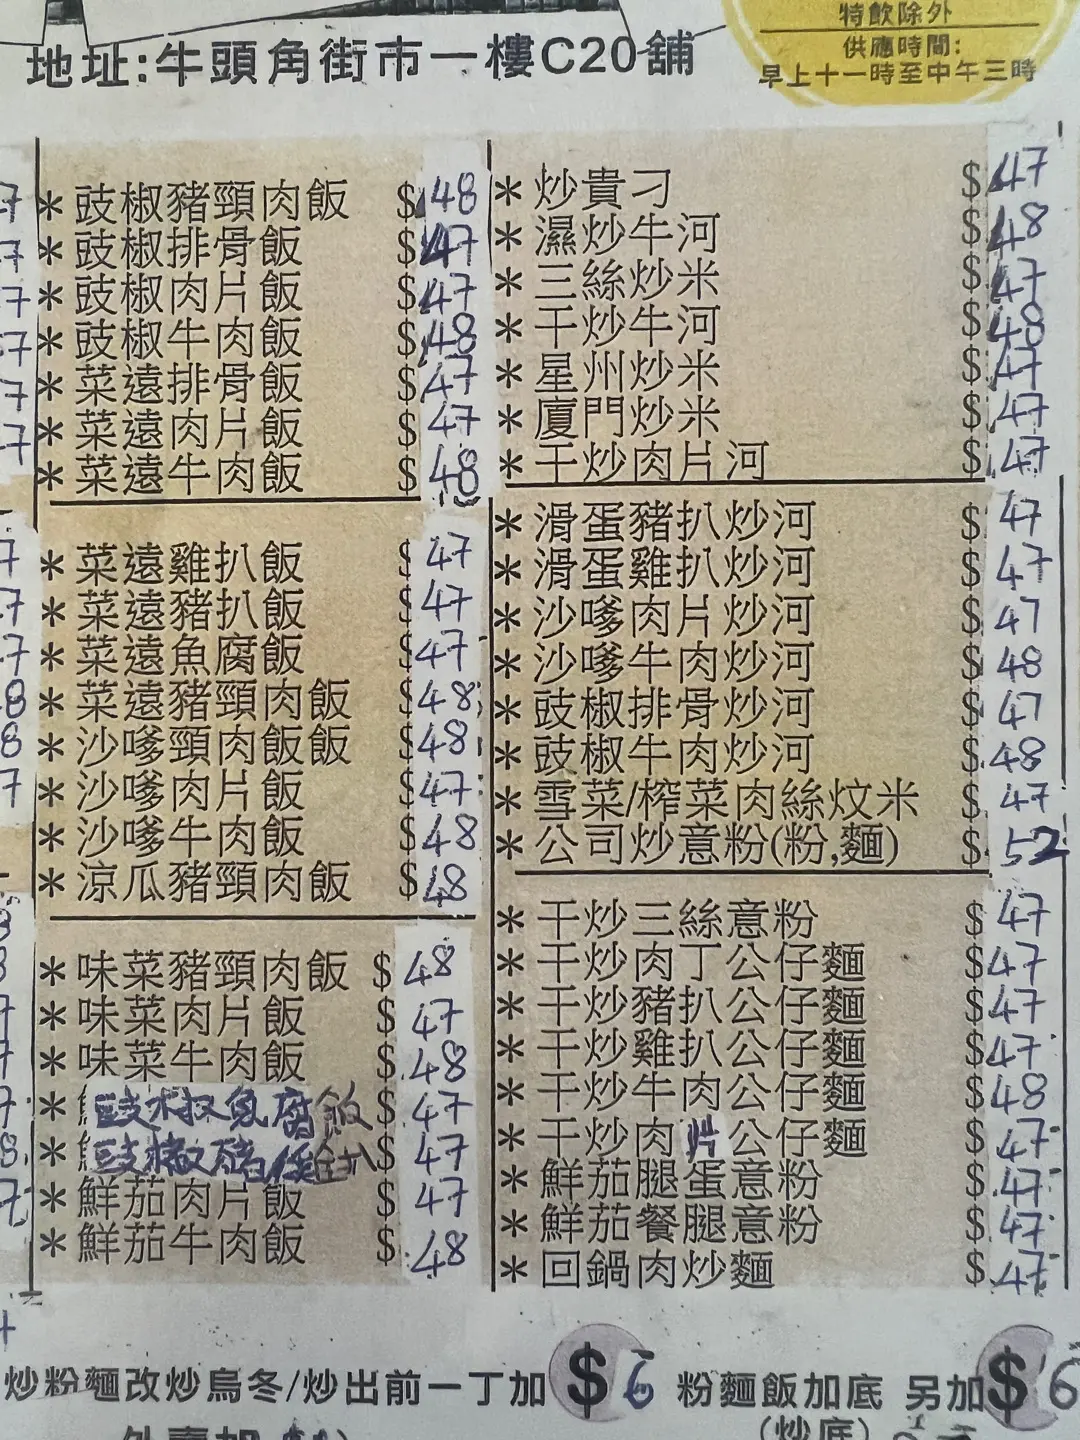 特飲除外
供應時間:
早上十一時至中午三時
地址:牛頭角街市一樓C20舖
*豉椒豬頸肉飯 $48
*豉椒排骨飯 $47
*豉椒肉片飯 $47
*豉椒牛肉飯 $48
*菜遠排骨飯 $47
*菜遠肉片飯 $47
*菜遠牛肉飯 $48
*菜遠雞扒飯 $47
*菜遠豬扒飯 $47
*菜遠魚腐飯 $47
*菜遠豬頸肉飯 $48
*沙嗲頸肉飯飯 $48
*沙嗲肉片飯 $47
*沙嗲牛肉飯 $48
*涼瓜豬頸肉飯 $48
*味菜豬頸肉飯 $48
*味菜肉片飯 $47
*味菜牛肉飯 $48
*豉椒魚腐飯 $47
*豉椒 $47
*鮮茄肉片飯 $47
*鮮茄牛肉飯 $48
*炒貴刁 $47
*濕炒牛河 $48
*三絲炒米 $47
*干炒牛河 $48
*星州炒米 $47
*廈門炒米 $47
*干炒肉片河 $47
*滑蛋豬扒炒河 $47
*滑蛋雞扒炒河 $47
*沙嗲肉片炒河 $47
*沙嗲牛肉炒河 $48
*豉椒排骨炒河 $47
*豉椒牛肉炒河 $48
*雪菜/榨菜肉絲炆米 $47
*公司炒意粉(粉,麵) $52
*干炒三絲意粉 $47
*干炒肉丁公仔麵 $47
*干炒豬扒公仔麵 $47
*干炒雞扒公仔麵 $47
*干炒牛肉公仔麵 $48
*干炒肉片公仔麵 $47
*鮮茄腿蛋意粉 $47
*鮮茄餐腿意粉 $47
*回鍋肉炒麵 $47
炒粉麵改炒烏冬/炒出前一丁加 $6 粉麵飯加底 另加$6
(炒底)